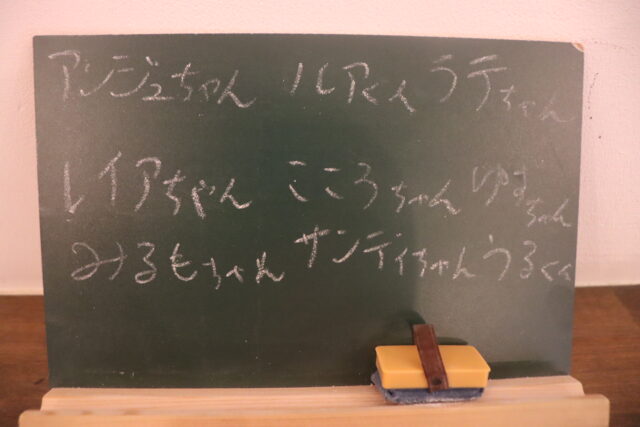 アンジュちゃん ルアくん ラテちゃん
レイアちゃん こころちゃん ゆずちゃん
みるもちゃん サンディちゃん うるくん